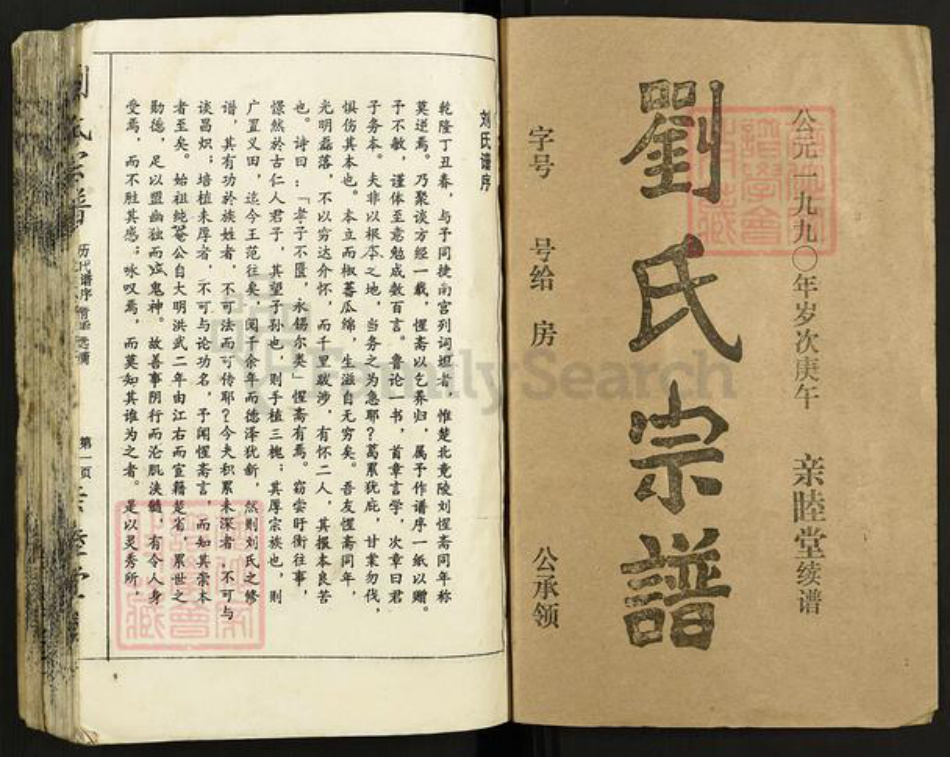 公元一九九〇年岁次庚午 亲睦堂续谱
劉氏宗譜
字号 号给 房 公承领
刘氏谱序
乾隆丁丑春，与予同捷南宫列词垣者，惟楚北竟陵刘惺斋同年称
莫逆焉。乃聚谈方经一载，惺斋以乞养归，属予作谱序一纸以赠。
予不敏，谨体至意勉成数百言。鲁论一书，首章言学，次章曰君
子务本。夫非以根本之地，当务之为急耶？葛累犹庇，甘棠勿伐，
惧伤其本也。本立而椒蕃瓜绵，生滋自无穷矣。吾友惺斋同年，
光明磊落，不以穷达介怀，而千里跋涉，有怀二人，其报本良苦
也。诗曰：「孝子不匮，永锡尔类」惺斋有焉。窃尝盱衡往事，
憬然於古仁人君子，其望子孙也，则手植三槐；其厚宗族也，则
广置义田，迄今王范往矣，闻千余年而德泽犹新，然则刘氏之修
谱，其有功於族姓者，不可法而可传耶？今夫积累未深者，不可与
谈昌炽；培植未厚者，不可与论功名，予闻惺斋言，而知其崇本
者至矣。始祖纯菴公自大明洪武二年由江右而宣籍楚省，累世之
勋德，足以盟幽独而泣鬼神。故善事阴行而沦肌浃髓，有令人身
受焉，而不胜其感；咏叹焉，而莫知其谁为之者。是以灵秀所，
历代谱序
第一页
FamilySearch